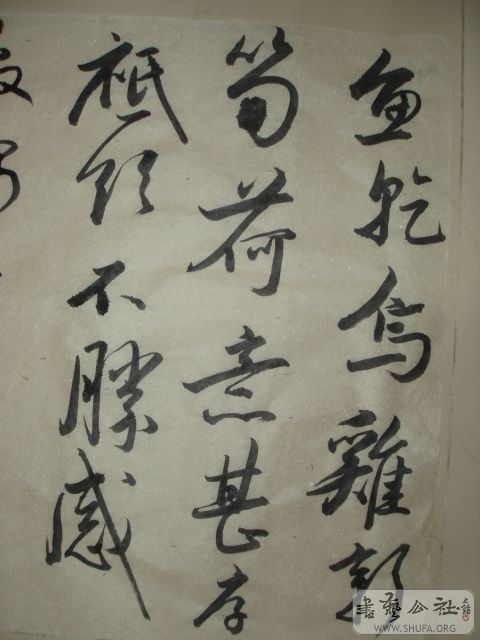 魚乾烏雞新
筍荷意甚厚
祗領不勝感
書藝公社
WWW.SHUFA.ORG